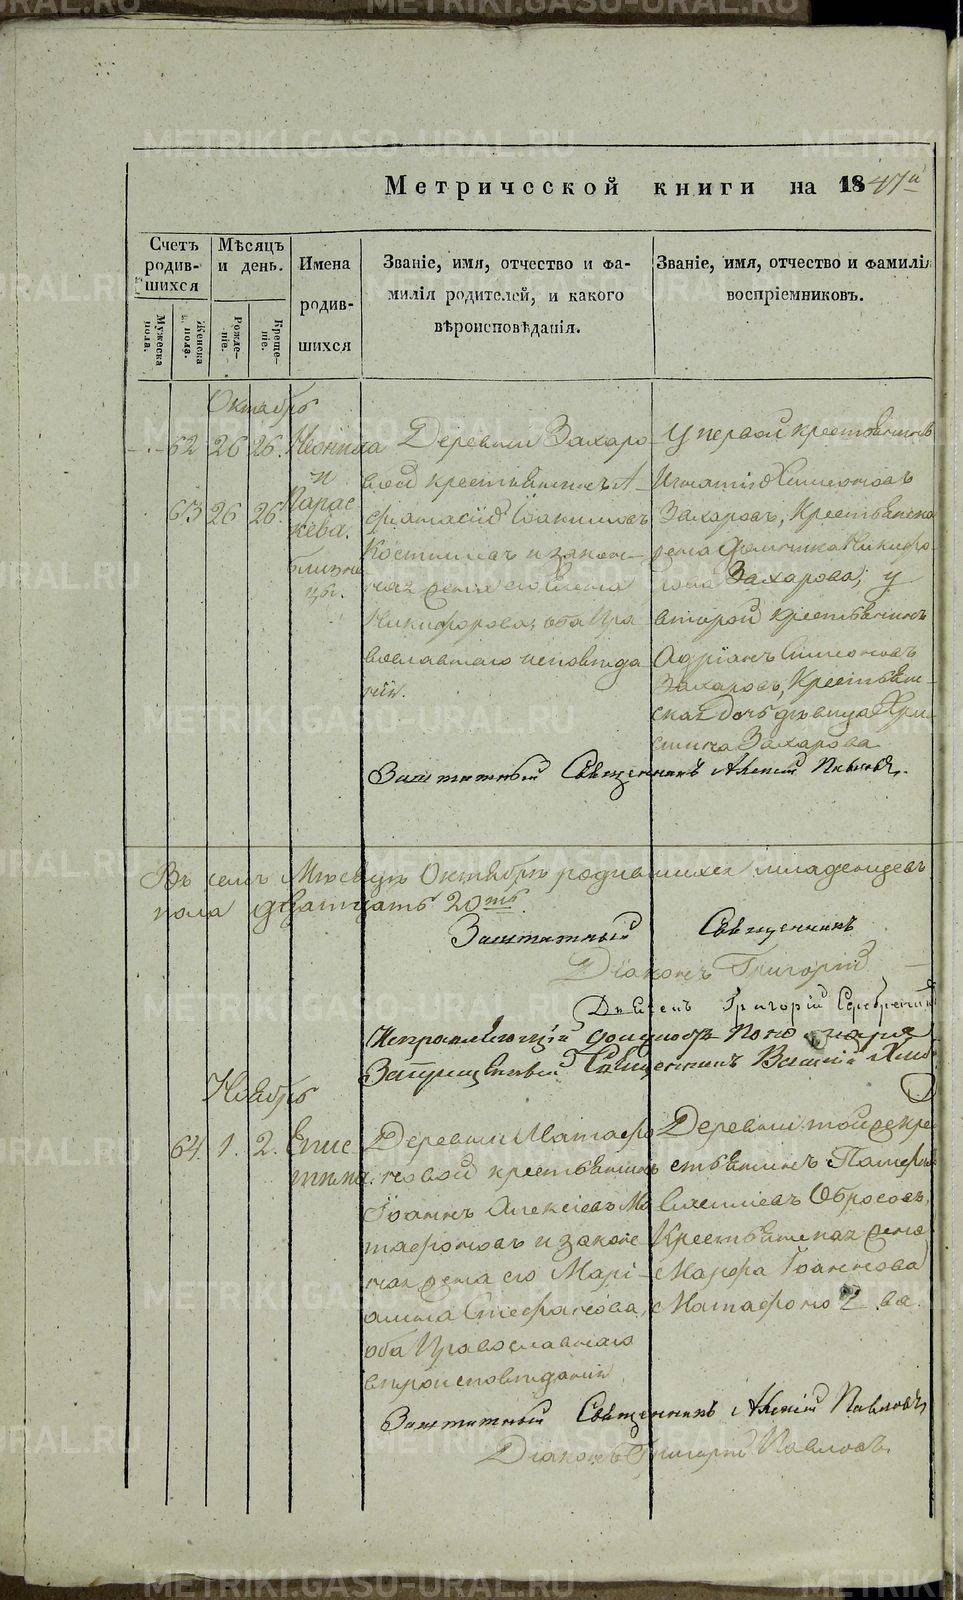 METRIKI.GASO-URAL.RU
Метрической книги на 1847й
Счетъ родив-шихся
Мѣсяцъ и день.
Имена родив-шихся
Званіе, имя, отчество и фа-
милія родителей, и какого
вѣроисповѣданія.
Званіе, имя, отчество и фамилія
воспріемниковъ.
Мужеска пола.
Женска пола.
Рожде-ніе.
Креще-ніе.
Октябрь
62 26 26. Неонила
и
63 26 26. Парас
кева.
близне
цы.
Деревни Захаро
вой крестьянинъ А
фанасій Іоакимовъ
Костылевъ и закон
ная жена его Елена
Никифорова, оба Пра
вославнаго исповѣда
нія.
У первой крестьянинъ
Игнатій Симеоновъ
Захаровъ, Крестьянска
жена Никифо
рова Захарова; у
второй крестьянинъ
Адріанъ Симеоновъ
Захаровъ, Крестьян
ская дочь дѣвица Хри
стина Захарова
Заштатный Священникъ Алексій Павловъ.
Въ семъ Мѣсяцѣ Октябрѣ родившихся младенцевъ
пола двятцать 20ть.
Заштатный Священникъ
Діаконъ Григорій
Григорій
Исправляющій должность Пономаря
Запрещенный Священникъ
Ноябрь
64. 1. 2. Епис
тима.
Деревни Матафо
новой крестьянинъ
Іоаннъ Алексіевъ Ма
тафоновъ и закон
ная жена его Марі
анна Стефанова,
оба Православнаго
вѣроисповѣданія
Деревни той же кре
стьянинъ
Обросовъ,
Крестьянская жена
Марфа Іоаннова
Матафонова.
Заштатный Священникъ Алексій Павловъ
Діаконъ Григорій Павловъ.